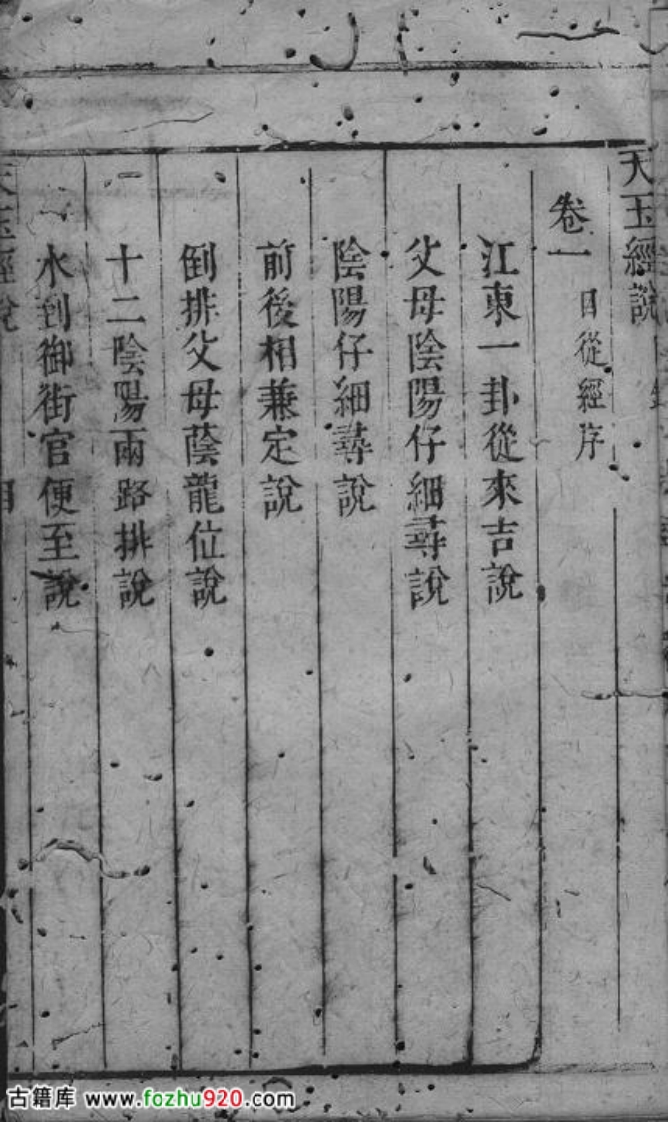 天玉經說
卷一 目從經序
江東一卦從來吉說
父母陰陽仔細尋說
陰陽仔細尋說
前後相兼定說
倒排父母蔭龍位說
十二陰陽兩路排說
水到御街官便至說
天玉經說
古籍库 www.fozhu920.com